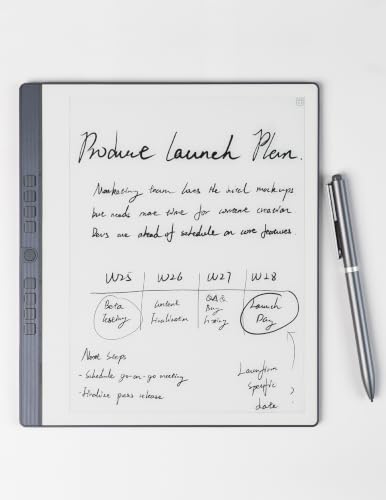 Product Launch Plan.
Marketing team loves the initial mockups
but needs more time for content creation
Devs are ahead of schedule on core features.
W25 W26 W27 W28
Beta Content QA & Launch
Testing Finalization Bug Day
Fixing
Next Steps
- Schedule go-on-go meeting
- Finalize press release
Launch
specific
date ?